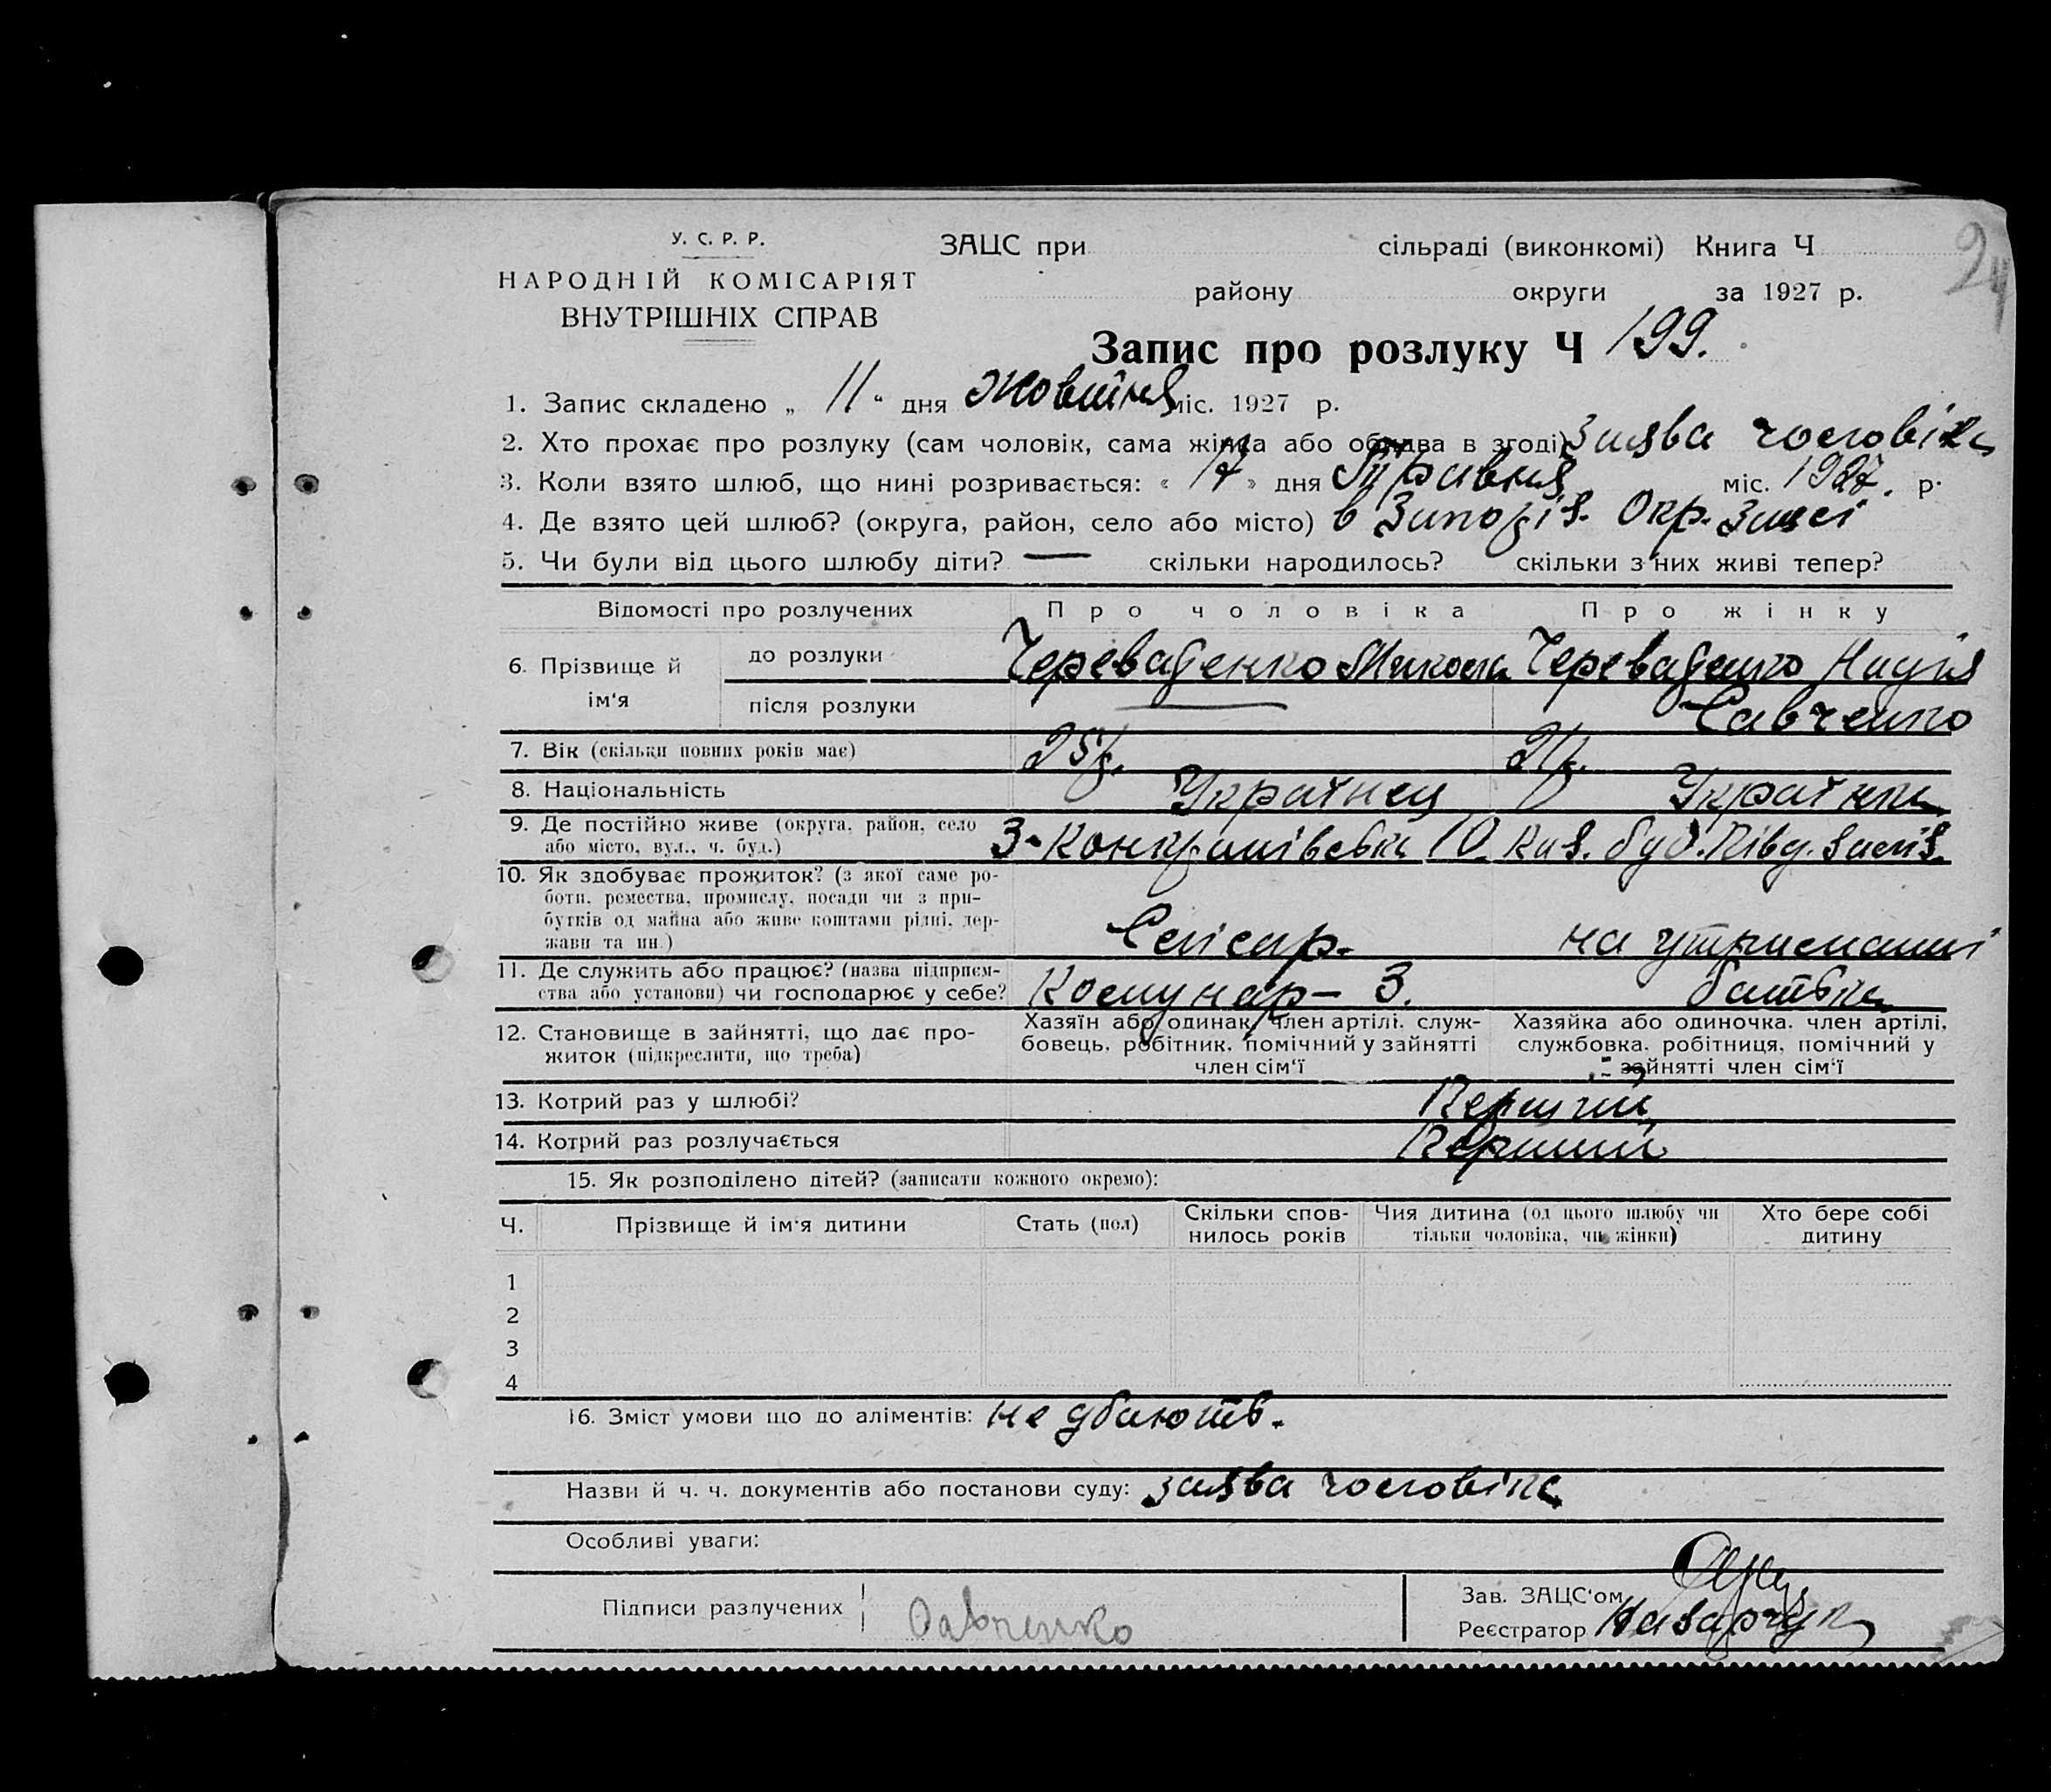 24
У. С. Р. Р.
НАРОДНІЙ КОМІСАРІЯТ
ВНУТРІШНІХ СПРАВ
ЗАЦС при сільраді (виконкомі) Книга Ч
району округи за 1927 р.
Запис про розлуку Ч 199.
1. Запис складено „ 11 “ дня Жовтня міс. 1927 р.
2. Хто прохає про розлуку (сам чоловік, сама жінка або обидва в згоді) заява чоловіка
3. Коли взято шлюб, що нині розривається: « 17 » дня Травня міс. 1927. р.
4. Де взято цей шлюб? (округа, район, село або місто) в Запоріз. Окр. Загсі
5. Чи були від цього шлюбу діти? — скільки народилось? скільки з них живі тепер?
Відомості про розлучених Про чоловіка Про жінку
6. Прізвище й ім'я до розлуки Череваденко Микола Череваденко Надія
після розлуки Савченко
7. Вік (скільки повних років має) 25 р. 21 р.
8. Національність Українец Українка
9. Де постійно живе (округа, район, село
або місто, вул., ч. буд.) З- 10 Каз. буд. Півд. заліз.
10. Як здобуває прожиток? (з якої саме ро-
боти, ремества, промислу, посади чи з при-
бутків од майна або живе коштами рідні, дер-
жави та ин.) Слісар. на утриманні
11. Де служить або працює? (назва підприєм-
ства або установи) чи господарює у себе? Комунар - З. батька
12. Становище в зайнятті, що дає про-
житок (підкреслити, що треба)
Хазяїн або одинак, член артілі, служ-
бовець, робітник, помічний у зайнятті
член сім'ї
Хазяйка або одиночка, член артілі,
службовка, робітниця, помічний у
зайнятті член сім'ї
13. Котрий раз у шлюбі? Перший
14. Котрий раз розлучається Перший
15. Як розподілено дітей? (записати кожного окремо):
Ч. Прізвище й ім'я дитини Стать (пол) Скільки спов-
нилось років Чия дитина (од цього шлюбу чи
тільки чоловіка, чи жінки) Хто бере собі
дитину
1
2
3
4
16. Зміст умови що до аліментів: не дбають.
Назви й ч. ч. документів або постанови суду: заява чоловіка
Особливі уваги:
Підписи разлучених Савченко
Зав. ЗАЦС'ом
Реєстратор Назарчук